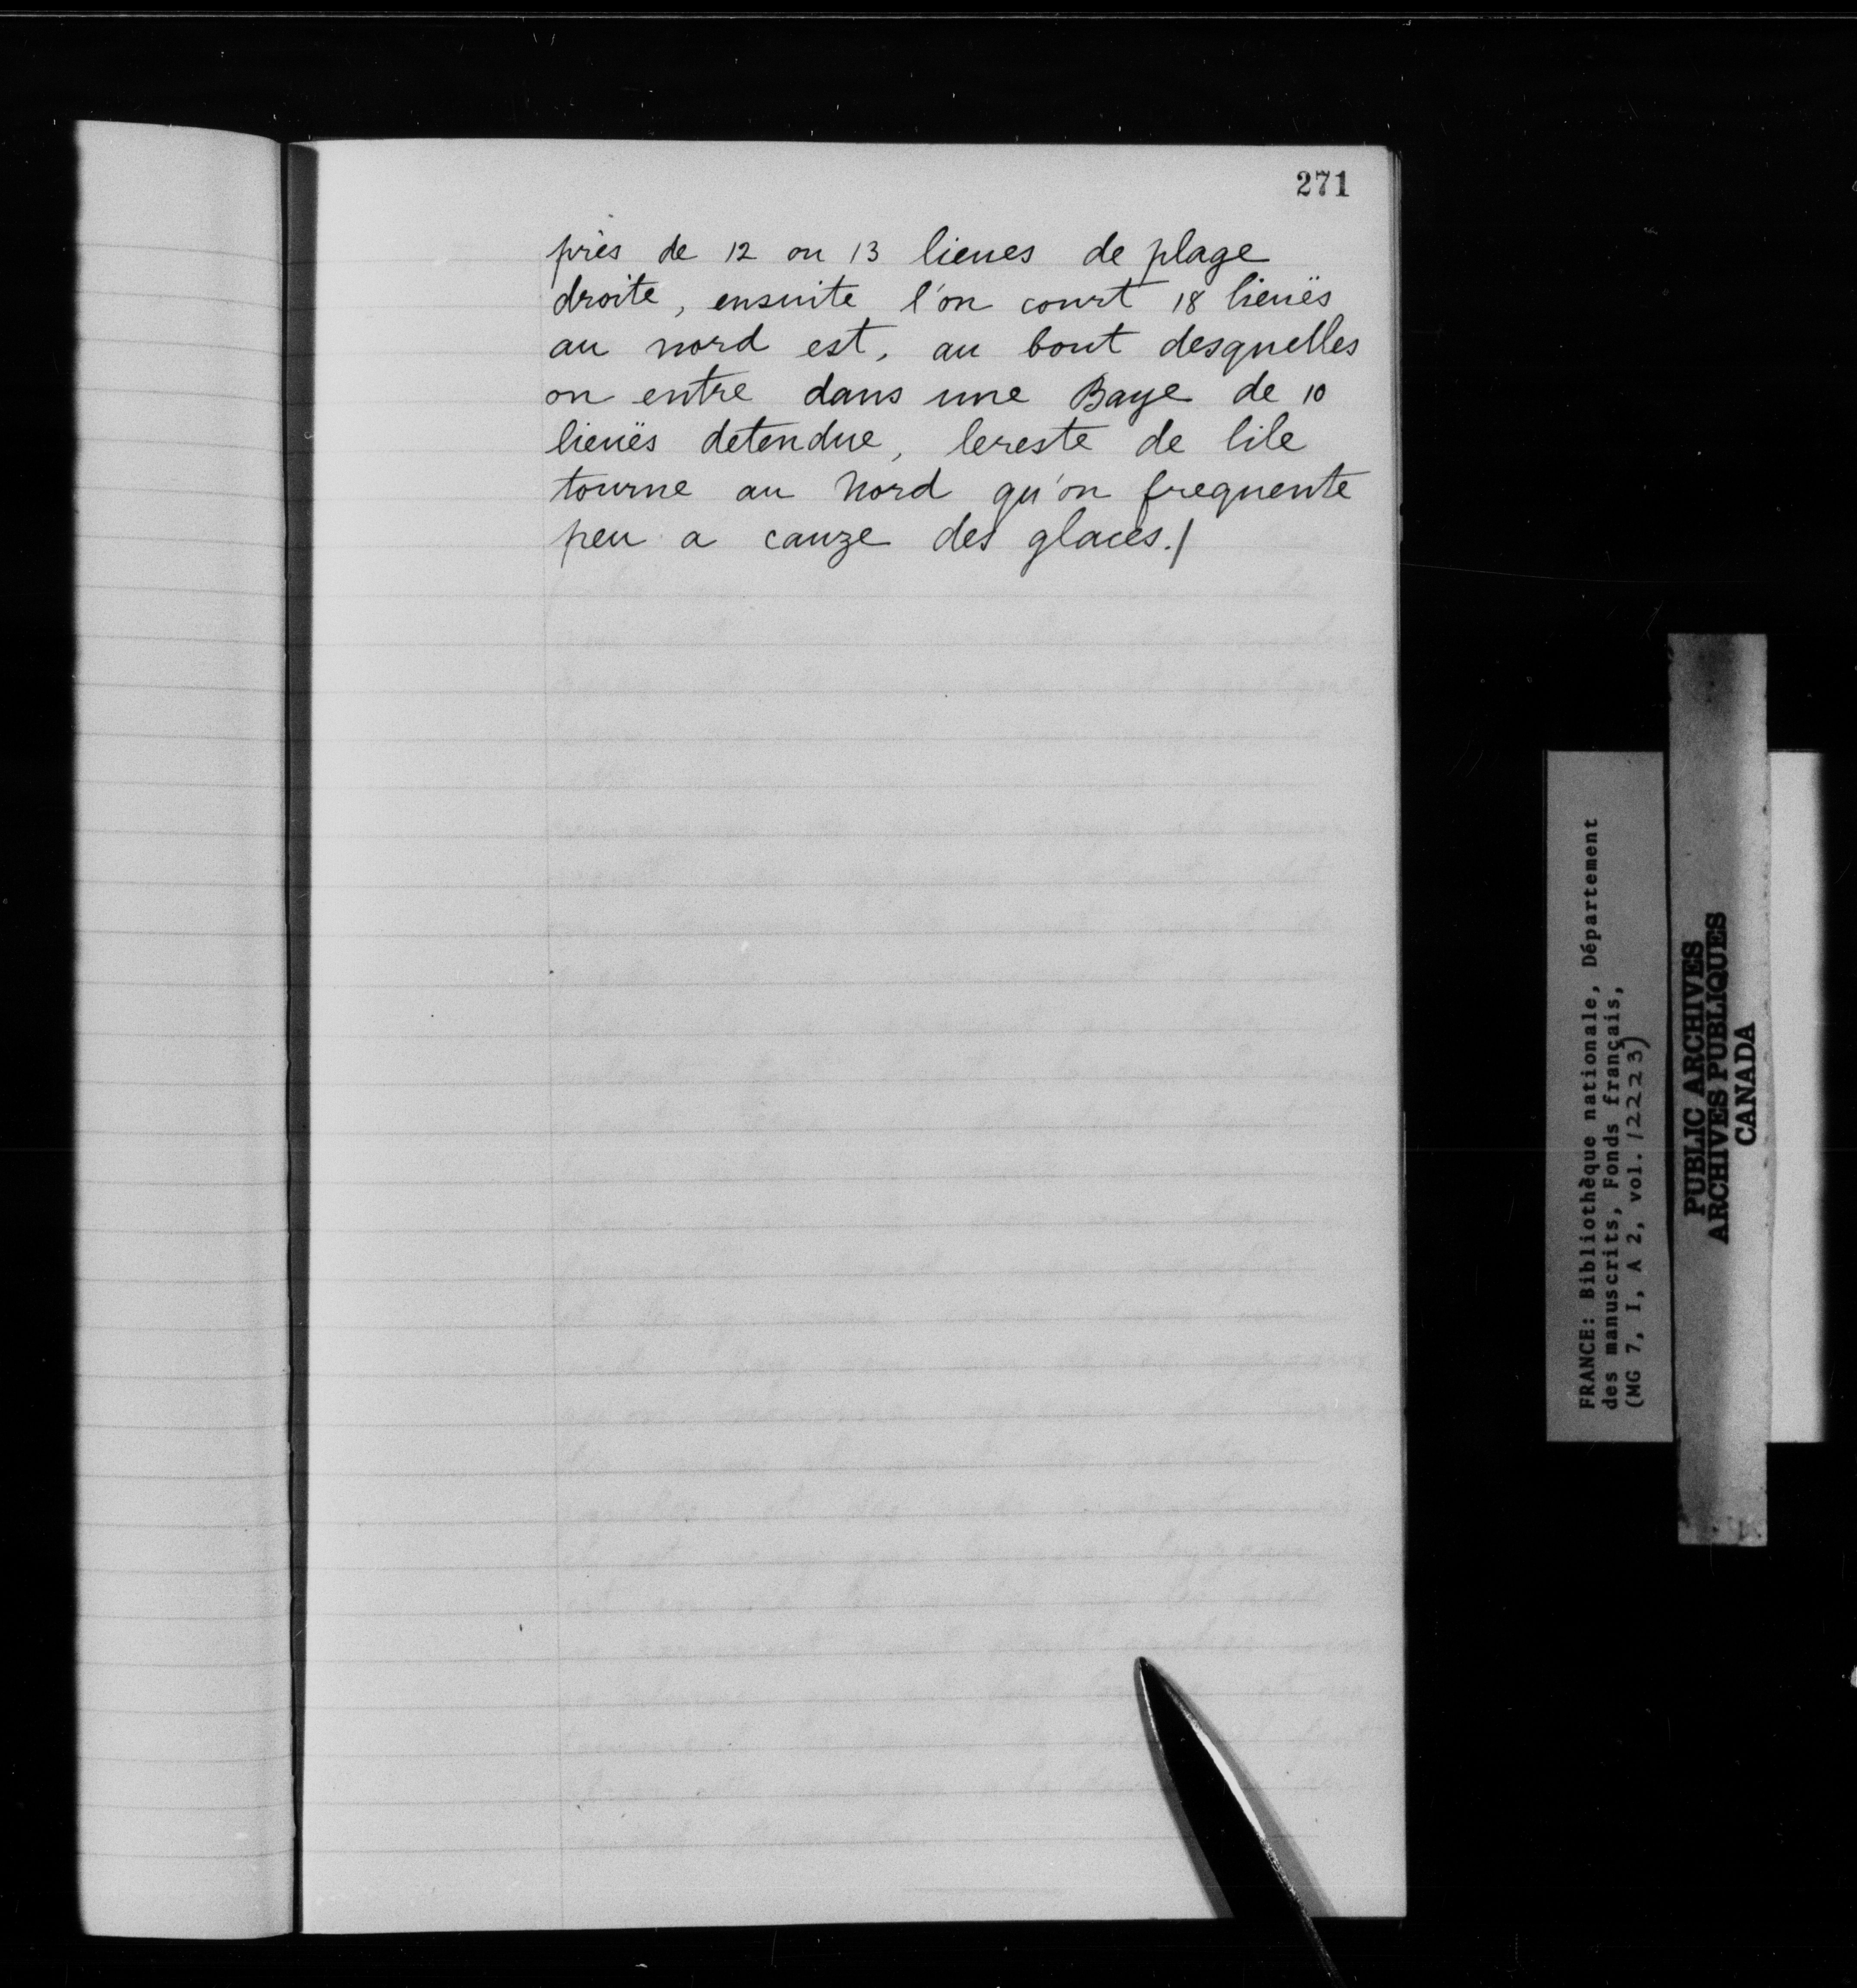 271
près de 12 ou 13 lieues de plage
droite, ensuite l'on court 18 lieuës
au nord est, au bout desquelles
on entre dans une Baye de 10
lieuës detendue, lereste de lile
tourne au Nord qu'on frequente
peu a cauze des glaces./
FRANCE: Bibliothèque nationale, Département
des manuscrits, Fonds français,
(MG 7, I, A 2, vol. 12223)
PUBLIC ARCHIVES
ARCHIVES PUBLIQUES
CANADA